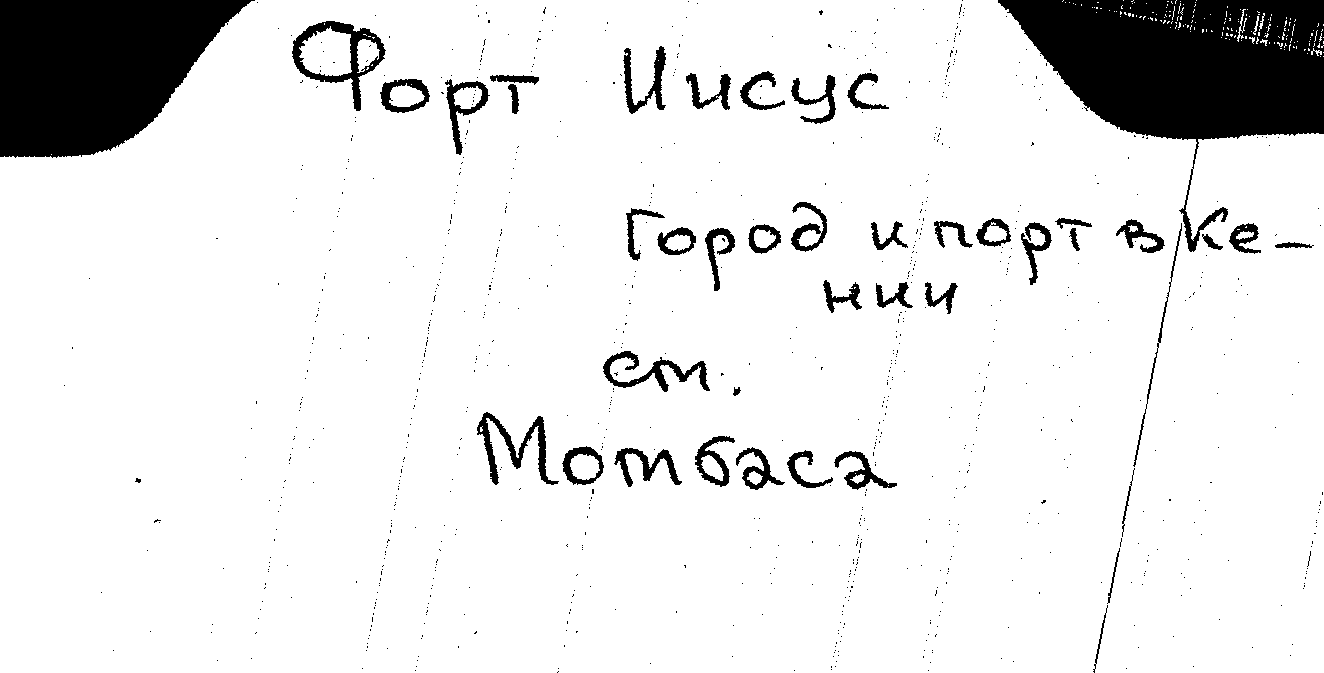 Форт Иисус
Город и порт в Ке-
нии
ст.
Мотбаса